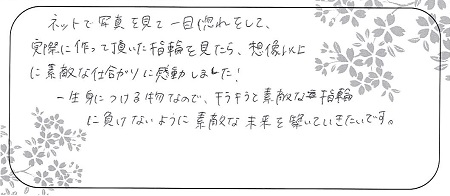 ネットで写真を見て一目惚れをして、
実際に作って頂いた指輪を見たら、想像以上
に素敵な仕上がりに感動しました!
一生身につける物なので、キラキラと素敵な指輪
に負けないように素敵な未来を築いていきたいです。